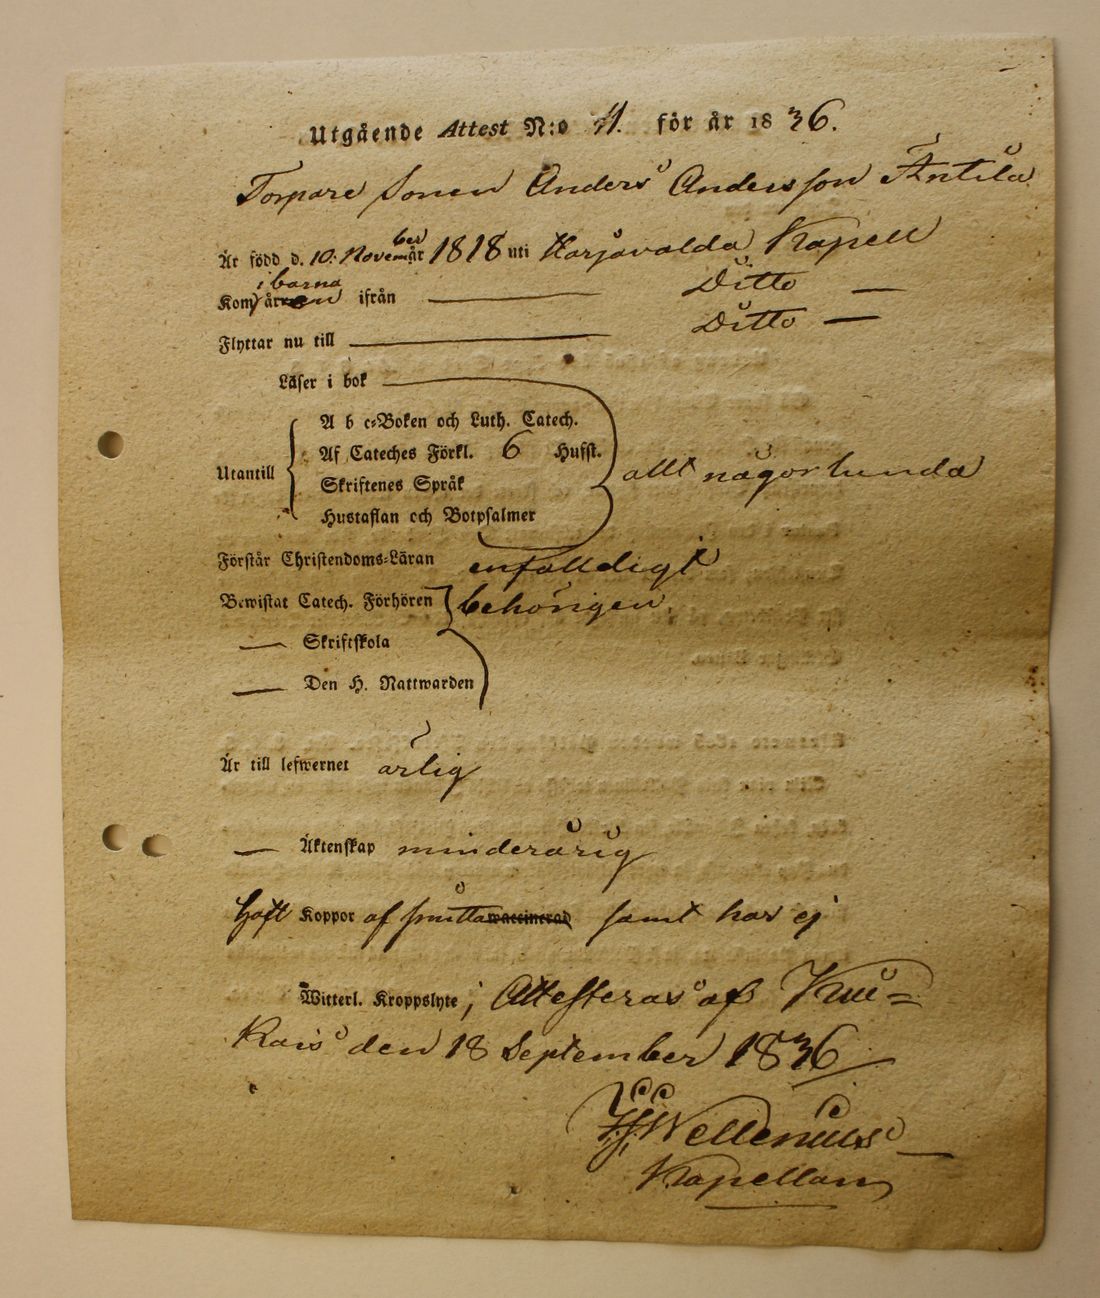 Utgående Attest N:o 11. för år 1836.
Torpare Sonen Anders Andersson Anttila
Är född d. 10. November år 1818 uti Harjavalda Kapell
Kom i barna åren ifrån — Ditto —
Flyttar nu till — Ditto —
Läser i bok
Utantill
A b c-Boken och Luth. Catech.
Af Cateches Förkl. 6 Hufst.
Skriftenes Språk
Hustaflan och Botpsalmer
allt någorlunda
Förstår Christendoms-Läran enfalldigt
Bewistat Catech. Förhören behörigen
— Skriftskola
— Den H. Nattwarden
Är till lefwernet ärlig
— Äktenskap minderårig
haft Koppor af smitta waccinerad samt har ej
Witterl. Kroppslyte; Attesteras af Kiu=
kais den 18 September 1836
Wellenius
Kapellan